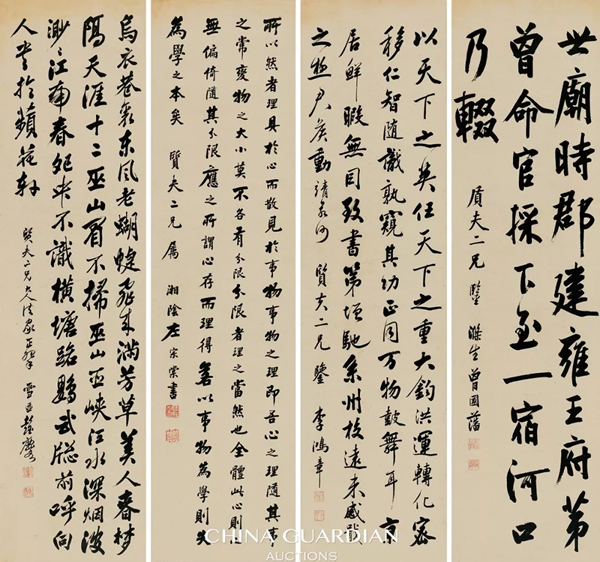 世廟時郡建雍王府第
曾命官採下至一宿河口
乃輟
質夫二兄鑒 滌生曾國藩
以天下之英任天下之重大鈞洪運轉化密
移仁智隨識孰窺其功正同萬物鼓舞耳京
居鮮暇無因致書第增馳系州校遠未感戢
之極
質夫二兄鑒 李鴻章
所以然者理具於心而散見於事物事物之理即吾心之理隨其事
之常變物之大小莫不各有分限分限者理之當然也全體此心則
無偏倚隨其分限應之所謂心存而理得若以事物為學則失
為學之本矣 質夫二兄屬 湘陰左宗棠書
烏衣巷裏東風老蝴蝶飛來滿芳草美人春夢
隔天涯十二巫山眉不掃巫山巫峽江水深烟波
渺渺江南春不識橫塘路鸚武窗前呼向
人
質夫二兄大人法家正 雪琴彭玉麐
CHINA GUARDIAN
AUCTIONS